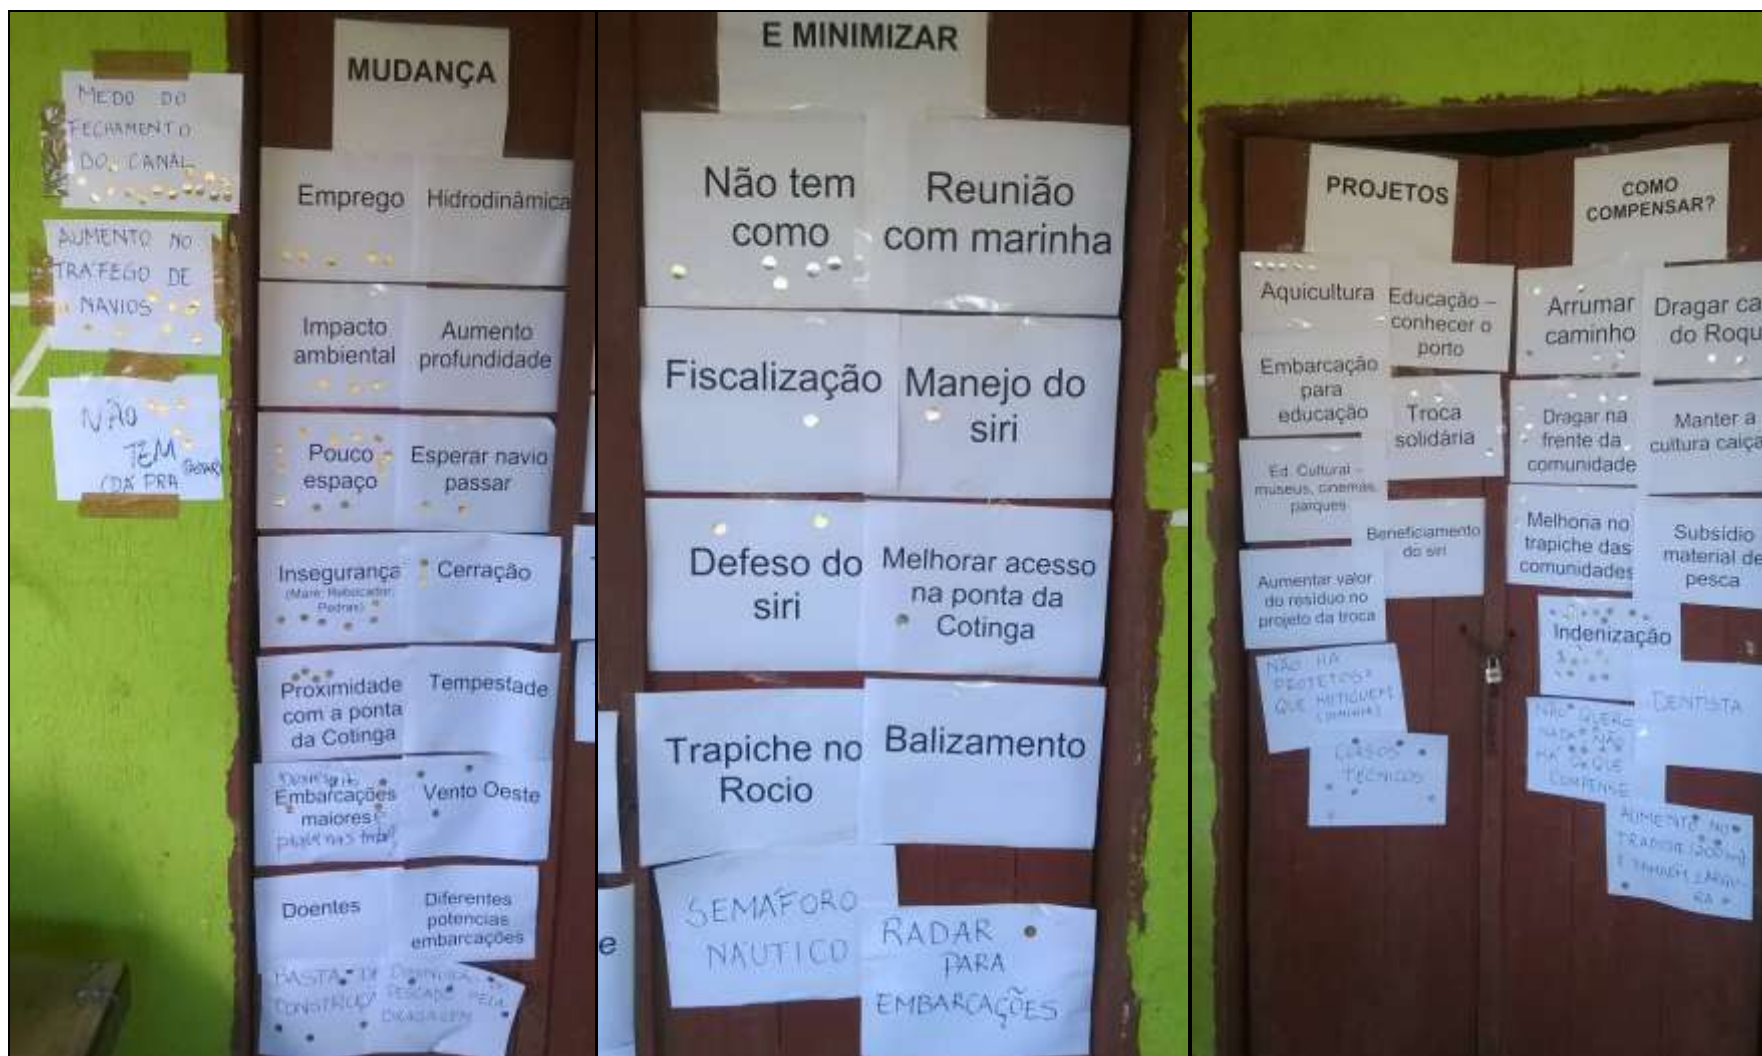 MEDO DO
FECHAMENTO
DO CANAL
AUMENTO NO
TRAFEGO DE
NAVIOS
NÃO
TEM
DA PRA
MUDANÇA
Emprego
Hidrodinâmica
Impacto
ambiental
Aumento
profundidade
Pouco
espaço
Esperar navio
passar
Insegurança
(Maré, Rebocador,
Pedras)
Cerração
Proximidade
com a ponta
da Cotinga
Tempestade
Embarcações
maiores
Vento Oeste
Doentes
Diferentes
potencias
embarcações
BASTA DE
PESCADO PELA
DRAGAGEM
E MINIMIZAR
Não tem
como
Reunião
com marinha
Fiscalização
Manejo do
siri
Defeso do
siri
Melhorar acesso
na ponta da
Cotinga
Trapiche no
Rocio
Balizamento
SEMÁFORO
NÁUTICO
RADAR
PARA
EMBARCAÇÕES
e
PROJETOS
Aquicultura
Educação –
conhecer o
porto
Embarcação
para
educação
Troca
solidária
Ed. Cultural –
museus, cinemas,
parques
Beneficiamento
do siri
Aumentar valor
do resíduo no
projeto da troca
NÃO HA
PROJETOS
QUE MITIGUEM
CURSOS
TÉCNICOS
COMO
COMPENSAR?
Arrumar
caminho
Dragar ca
do Roqu
Dragar na
frente da
comunidade
Manter a
cultura caiça
Melhoria no
trapiche das
comunidades
Subsídio
material de
pesca
Indenização
DENTISTA
NÃO QUERO
NADA NÃO
HÁ O QUE
COMPENSE
AUMENTO NO
TRAPICHE (200m)
E TAMBÉM LARGU-
RA